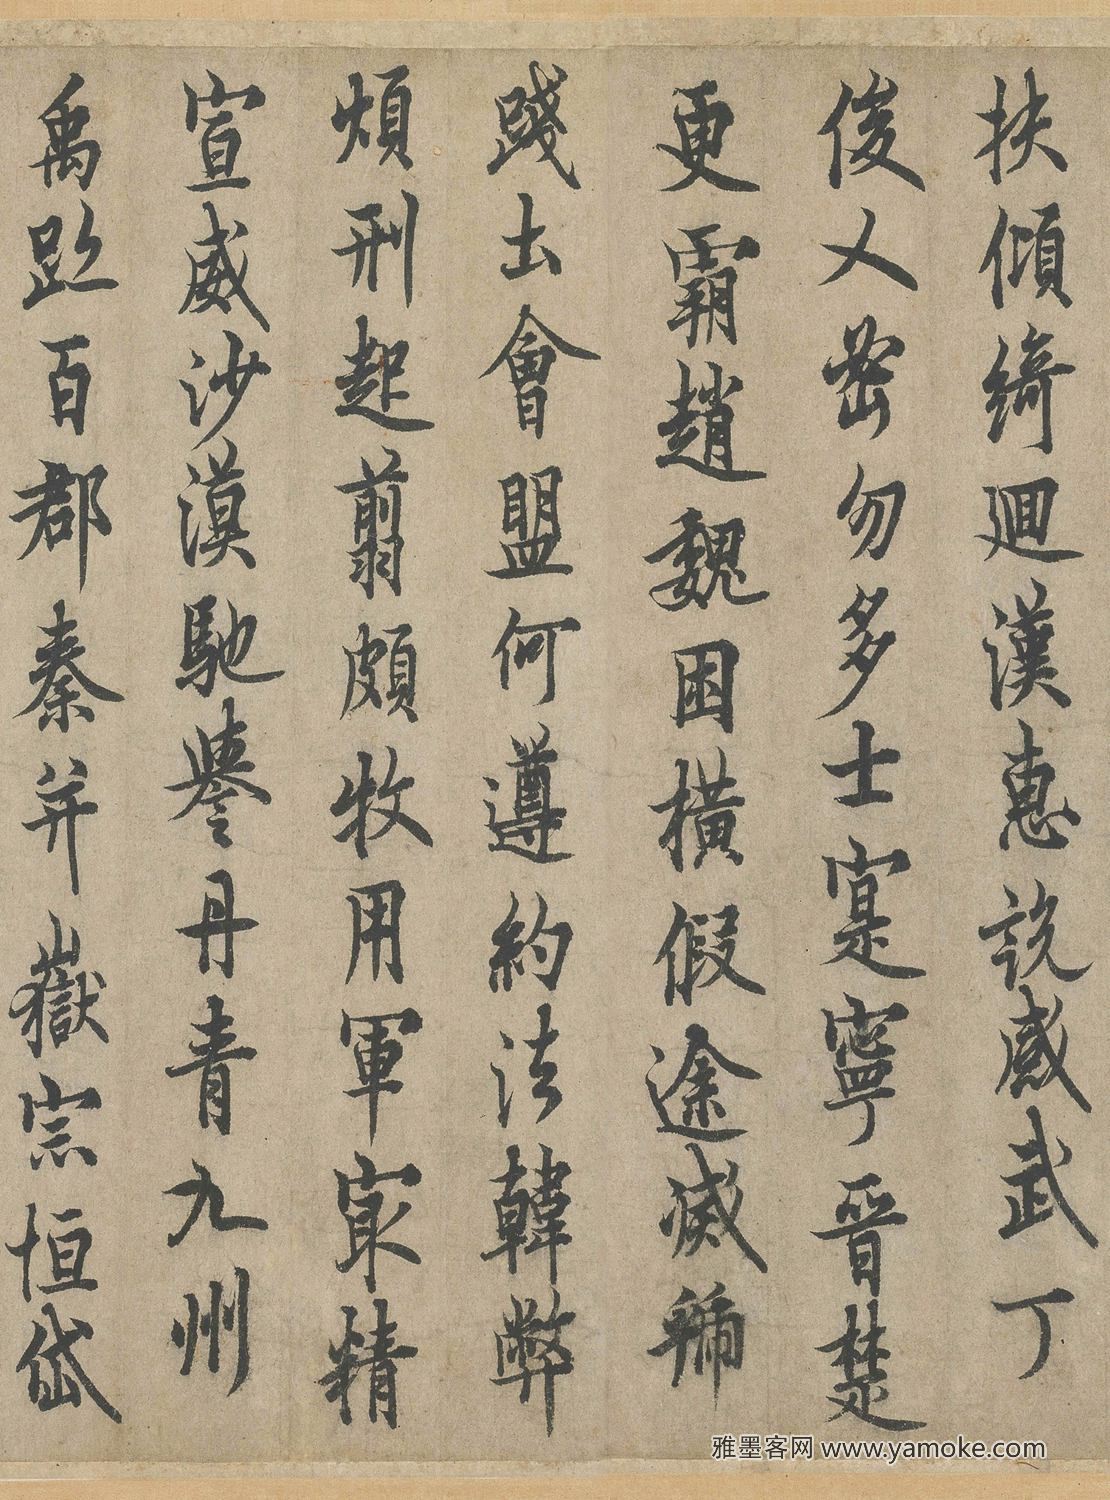 扶傾綺迴漢惠説感武丁
俊乂密勿多士寔寧晉楚
更霸趙魏困橫假途滅虢
踐土會盟何遵約法韓弊
煩刑起翦頗牧用軍最精
宣威沙漠馳譽丹青九州
禹跡百郡秦并嶽宗恒岱
雅墨客网 www.yamoke.com